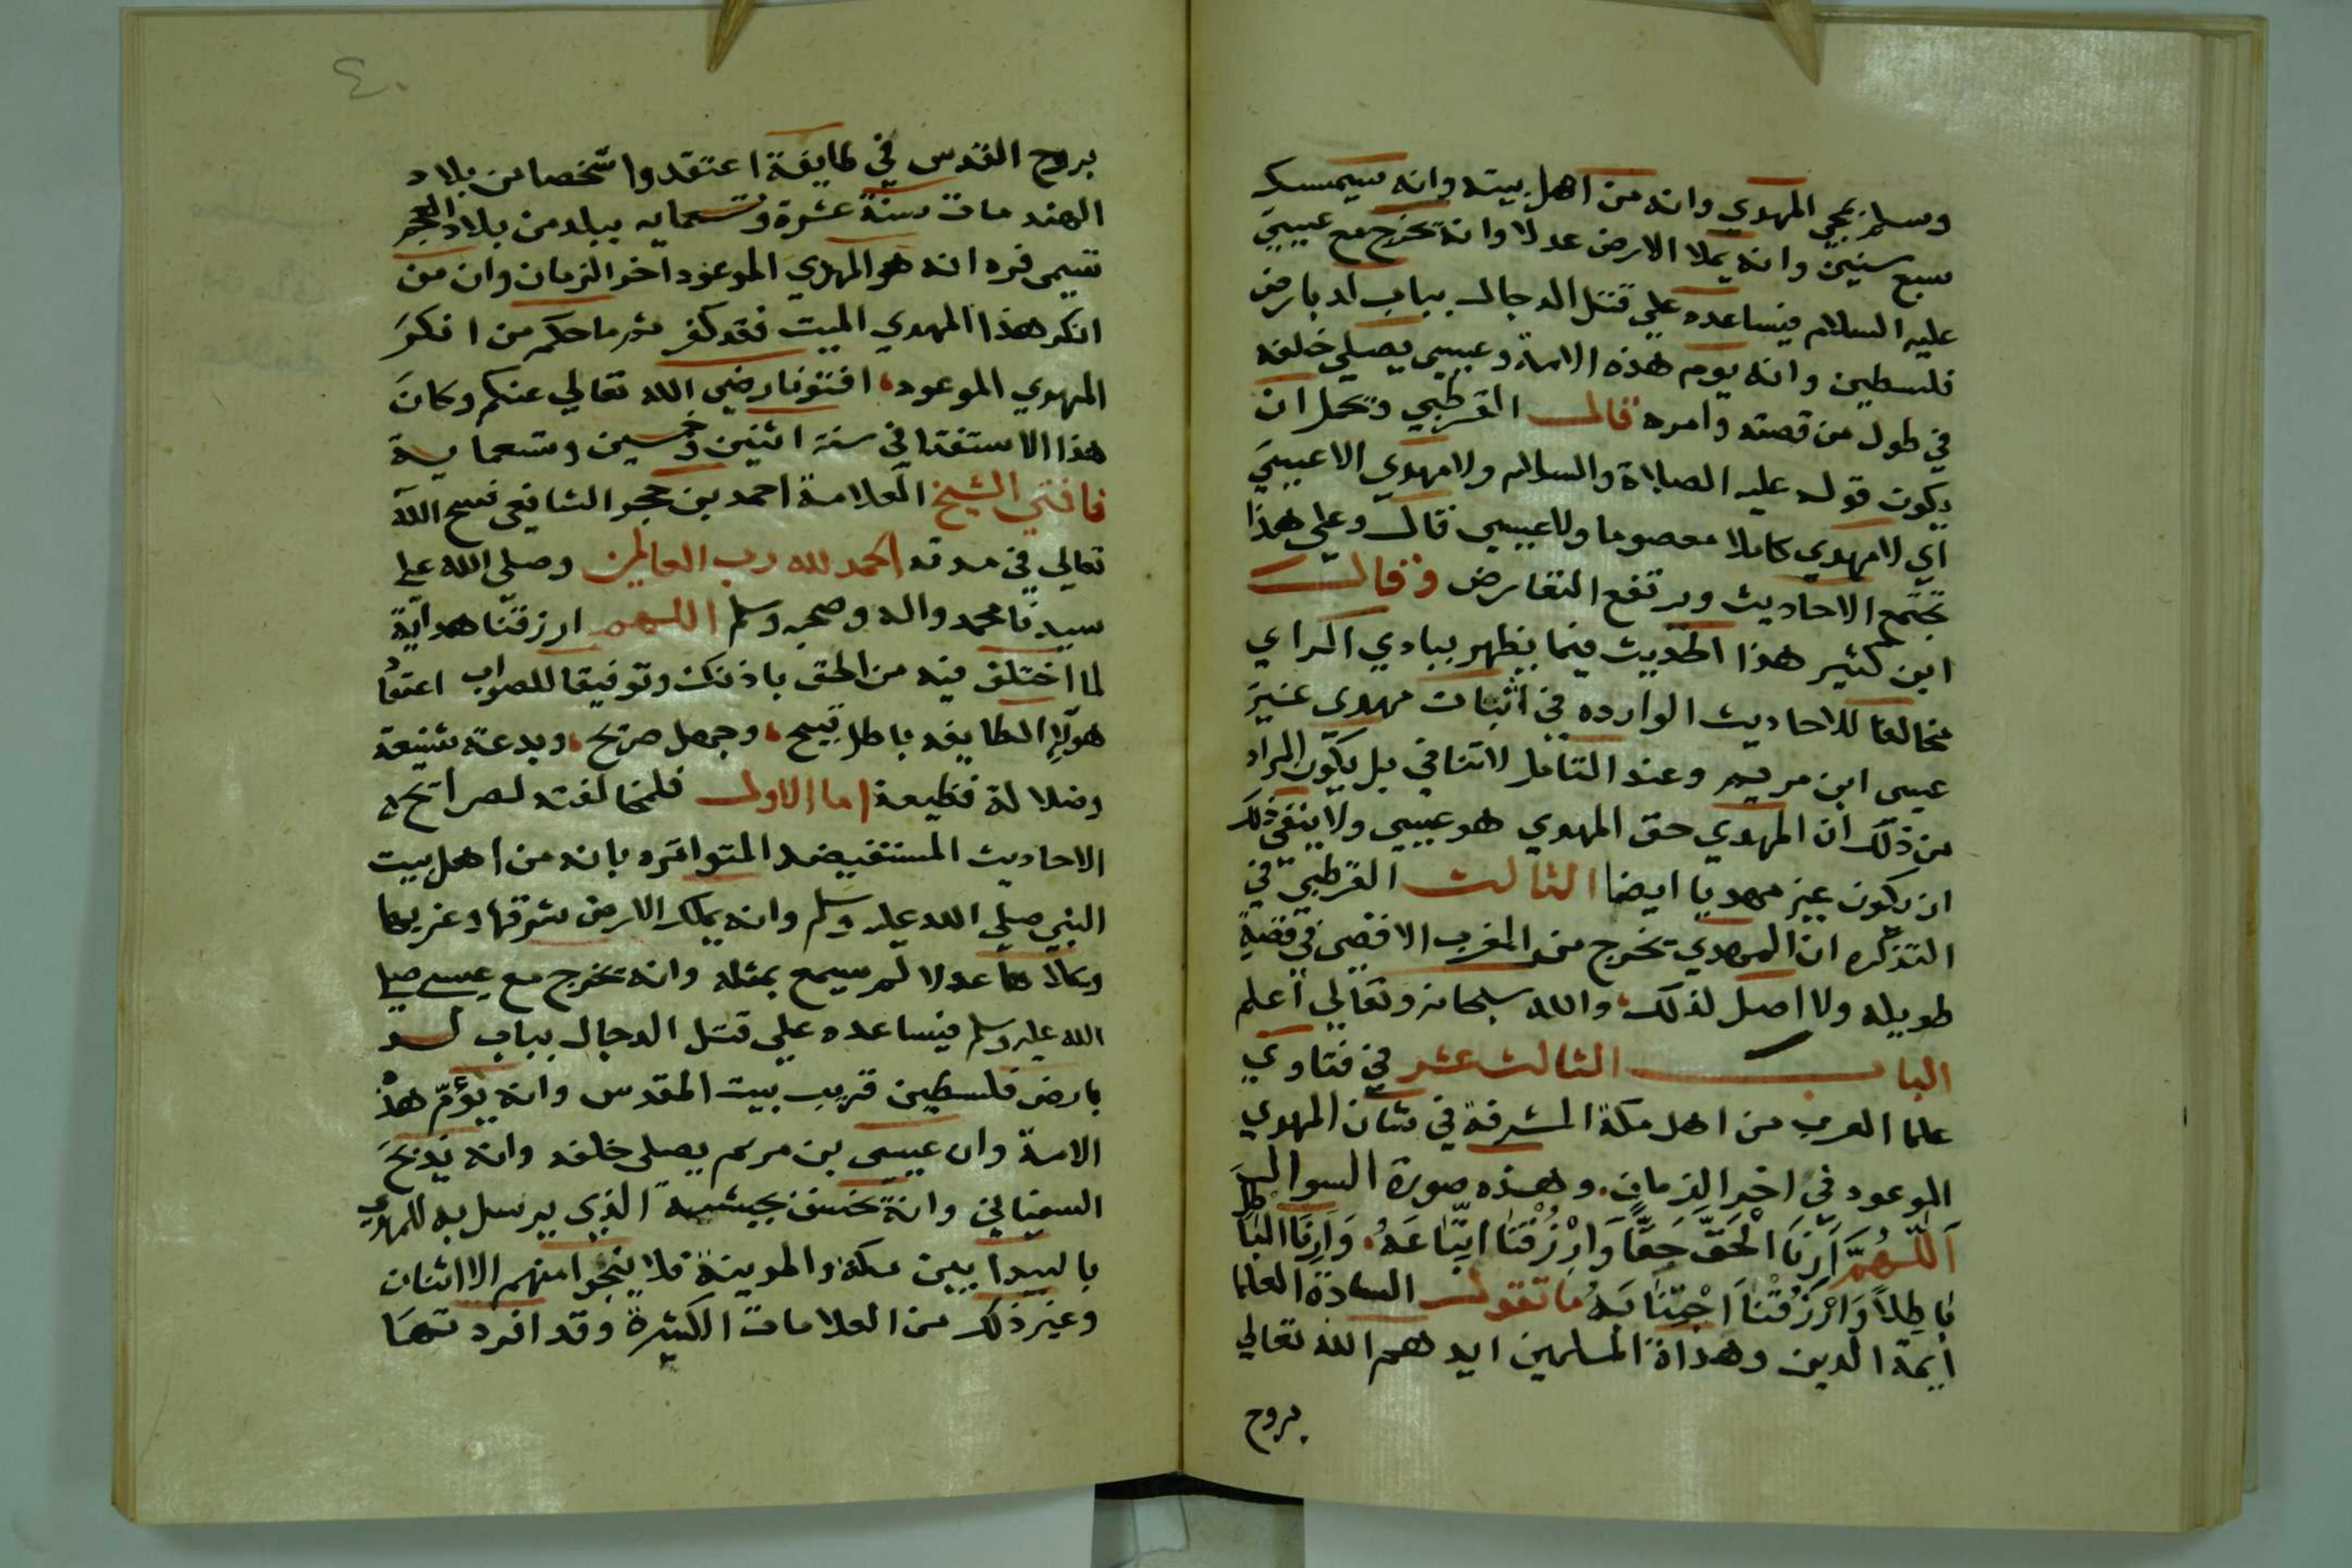 وسلم بمجي المهدي وانه من اهل بيته وانه سيمسك
سبع سنين وانه يملا الارض عدلا وانه يخرج مع عيسي
عليه السلام فيساعده علي قتل الدجال بباب لد بارض
فلسطين وانه يوم هذه الامة وعيسي يصلي خلفه
في طول من قصته وامره قال القرطبي ويحمل ان
يكون قوله عليه الصلاة والسلام ولا مهدي الا عيسي
اي لا مهدي كاملا معصوما ولا عيسي قال وعلي هذا
تجتمع الاحاديث ويرتفع التعارض وقال
ابن كثير هذا الحديث فيما يظهر ببادي الراي
مخالفا للاحاديث الوارده في اثبات مهدي غير
عيسى ابن مريم وعند التامل لا تنافي بل يكون المراد
من ذلك ان المهدي حق المهدي هو عيسي ولا ينفي ذلك
ان يكون غيره مهديا ايضا الثالث القرطبي في
التذكره ان المهدي يخرج من المغرب الاقصى في قصة
طويله ولا اصل لذلك والله سبحانه وتعالي اعلم
الباب الثالث عشر في فتاوي
علما العرب من اهل مكة المشرفة في شان المهدي
الموعود في اخر الزمان وهذه صورة السوال
اَللّٰهُمَّ اَرِنَا الْحَقَّ حَقًّا وَارْزُقْنَا اتِّبَاعَهُ وَاَرِنَا الْبَاطِلَ
بَاطِلاً وَارْزُقْنَا اجْتِنَابَهُ ما تقول السادة العلما
ايمة الدين وهداة المسلمين ايدهم الله تعالي
بروح
٤٠
بروح القدس في طايفة اعتقدوا شخصا من بلاد
الهند مات سنة عشرة وتسعمايه ببلد من بلاد العجم
تسمى فره انه هو المهدي الموعود اخر الزمان وان من
انكر هذا المهدي الميت فقد كفر ثم ما حكم من انكر
المهدي الموعود افتونا رضي الله تعالي عنكم وكان
هذا الاستفتا في سنة اثنين وخمسين وتسعماية
فافتي الشيخ العلامة احمد بن حجر الشافعي فسح الله
تعالي في مدته الحمد لله رب العالمين وصلي الله علي
سيدنا محمد واله وصحبه وسلم اللهم ارزقنا هداية
لما اختلف فيه من الحق باذنك وتوفيقا للصواب اعتقاد
هولا الطايفه باطل قبيح وجهل صريح وبدعة شنيعة
وضلالة فظيعة اما الاول فلمخالفته لصرايح
الاحاديث المستفيضه المتواتره بانه من اهل بيت
النبي صلي الله عليه وسلم وانه يملك الارض شرقها وغربها
ويملاها عدلا لم يسمع بمثله وانه يخرج مع عيسى صلي
الله عليه وسلم فيساعده علي قتل الدجال بباب لد
بارض فلسطين قريب بيت المقدس وانه يؤمّ هذه
الامة وان عيسى بن مريم يصلى خلفه وانه يذبح
السفياني وانه يخسف بجيشه الذي يرسل به للمهدي
بالبيدا بين مكة والمدينة فلا ينجوا منهم الا اثنان
وغير ذلك من العلامات الكثيرة وقد افردتها